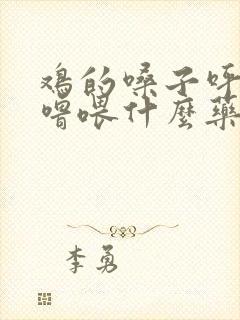 鸡的嗓子呼
噜喂什麼藥
李勇